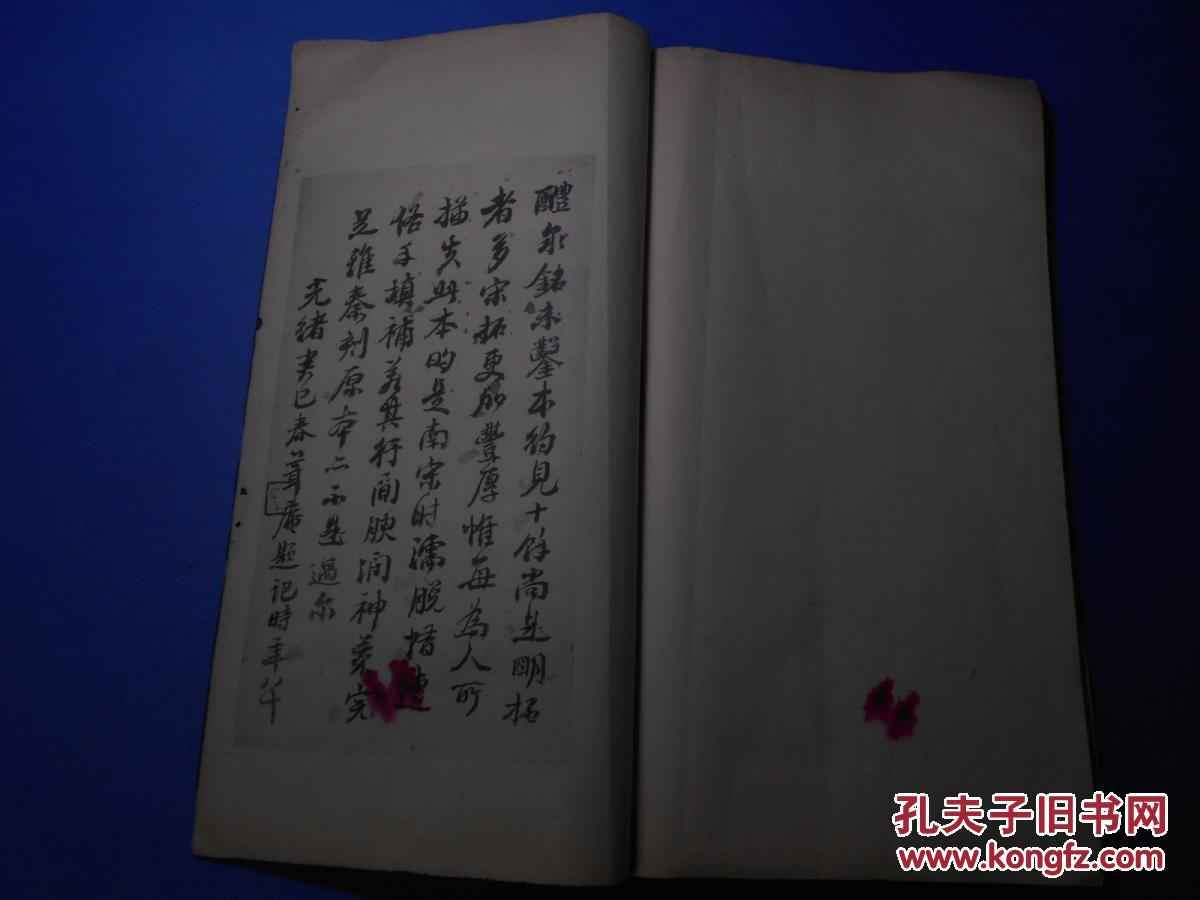 醴泉銘未鑿本約見十餘尚是明拓
者多宋拓更成豐厚惟每為人所
描失此本的是南宋時濡脫惜遭
俗手填補若其行間腴潤神采完
足雖秦刻原本亦不是過爾
光緒癸巳春葺庵題記時年
孔夫子旧书网
www.kongfz.com